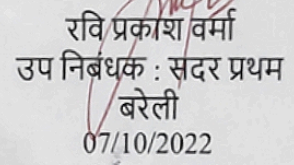 रवि प्रकाश वर्मा
उप निबंधक : सदर प्रथम
बरेली
07/10/2022